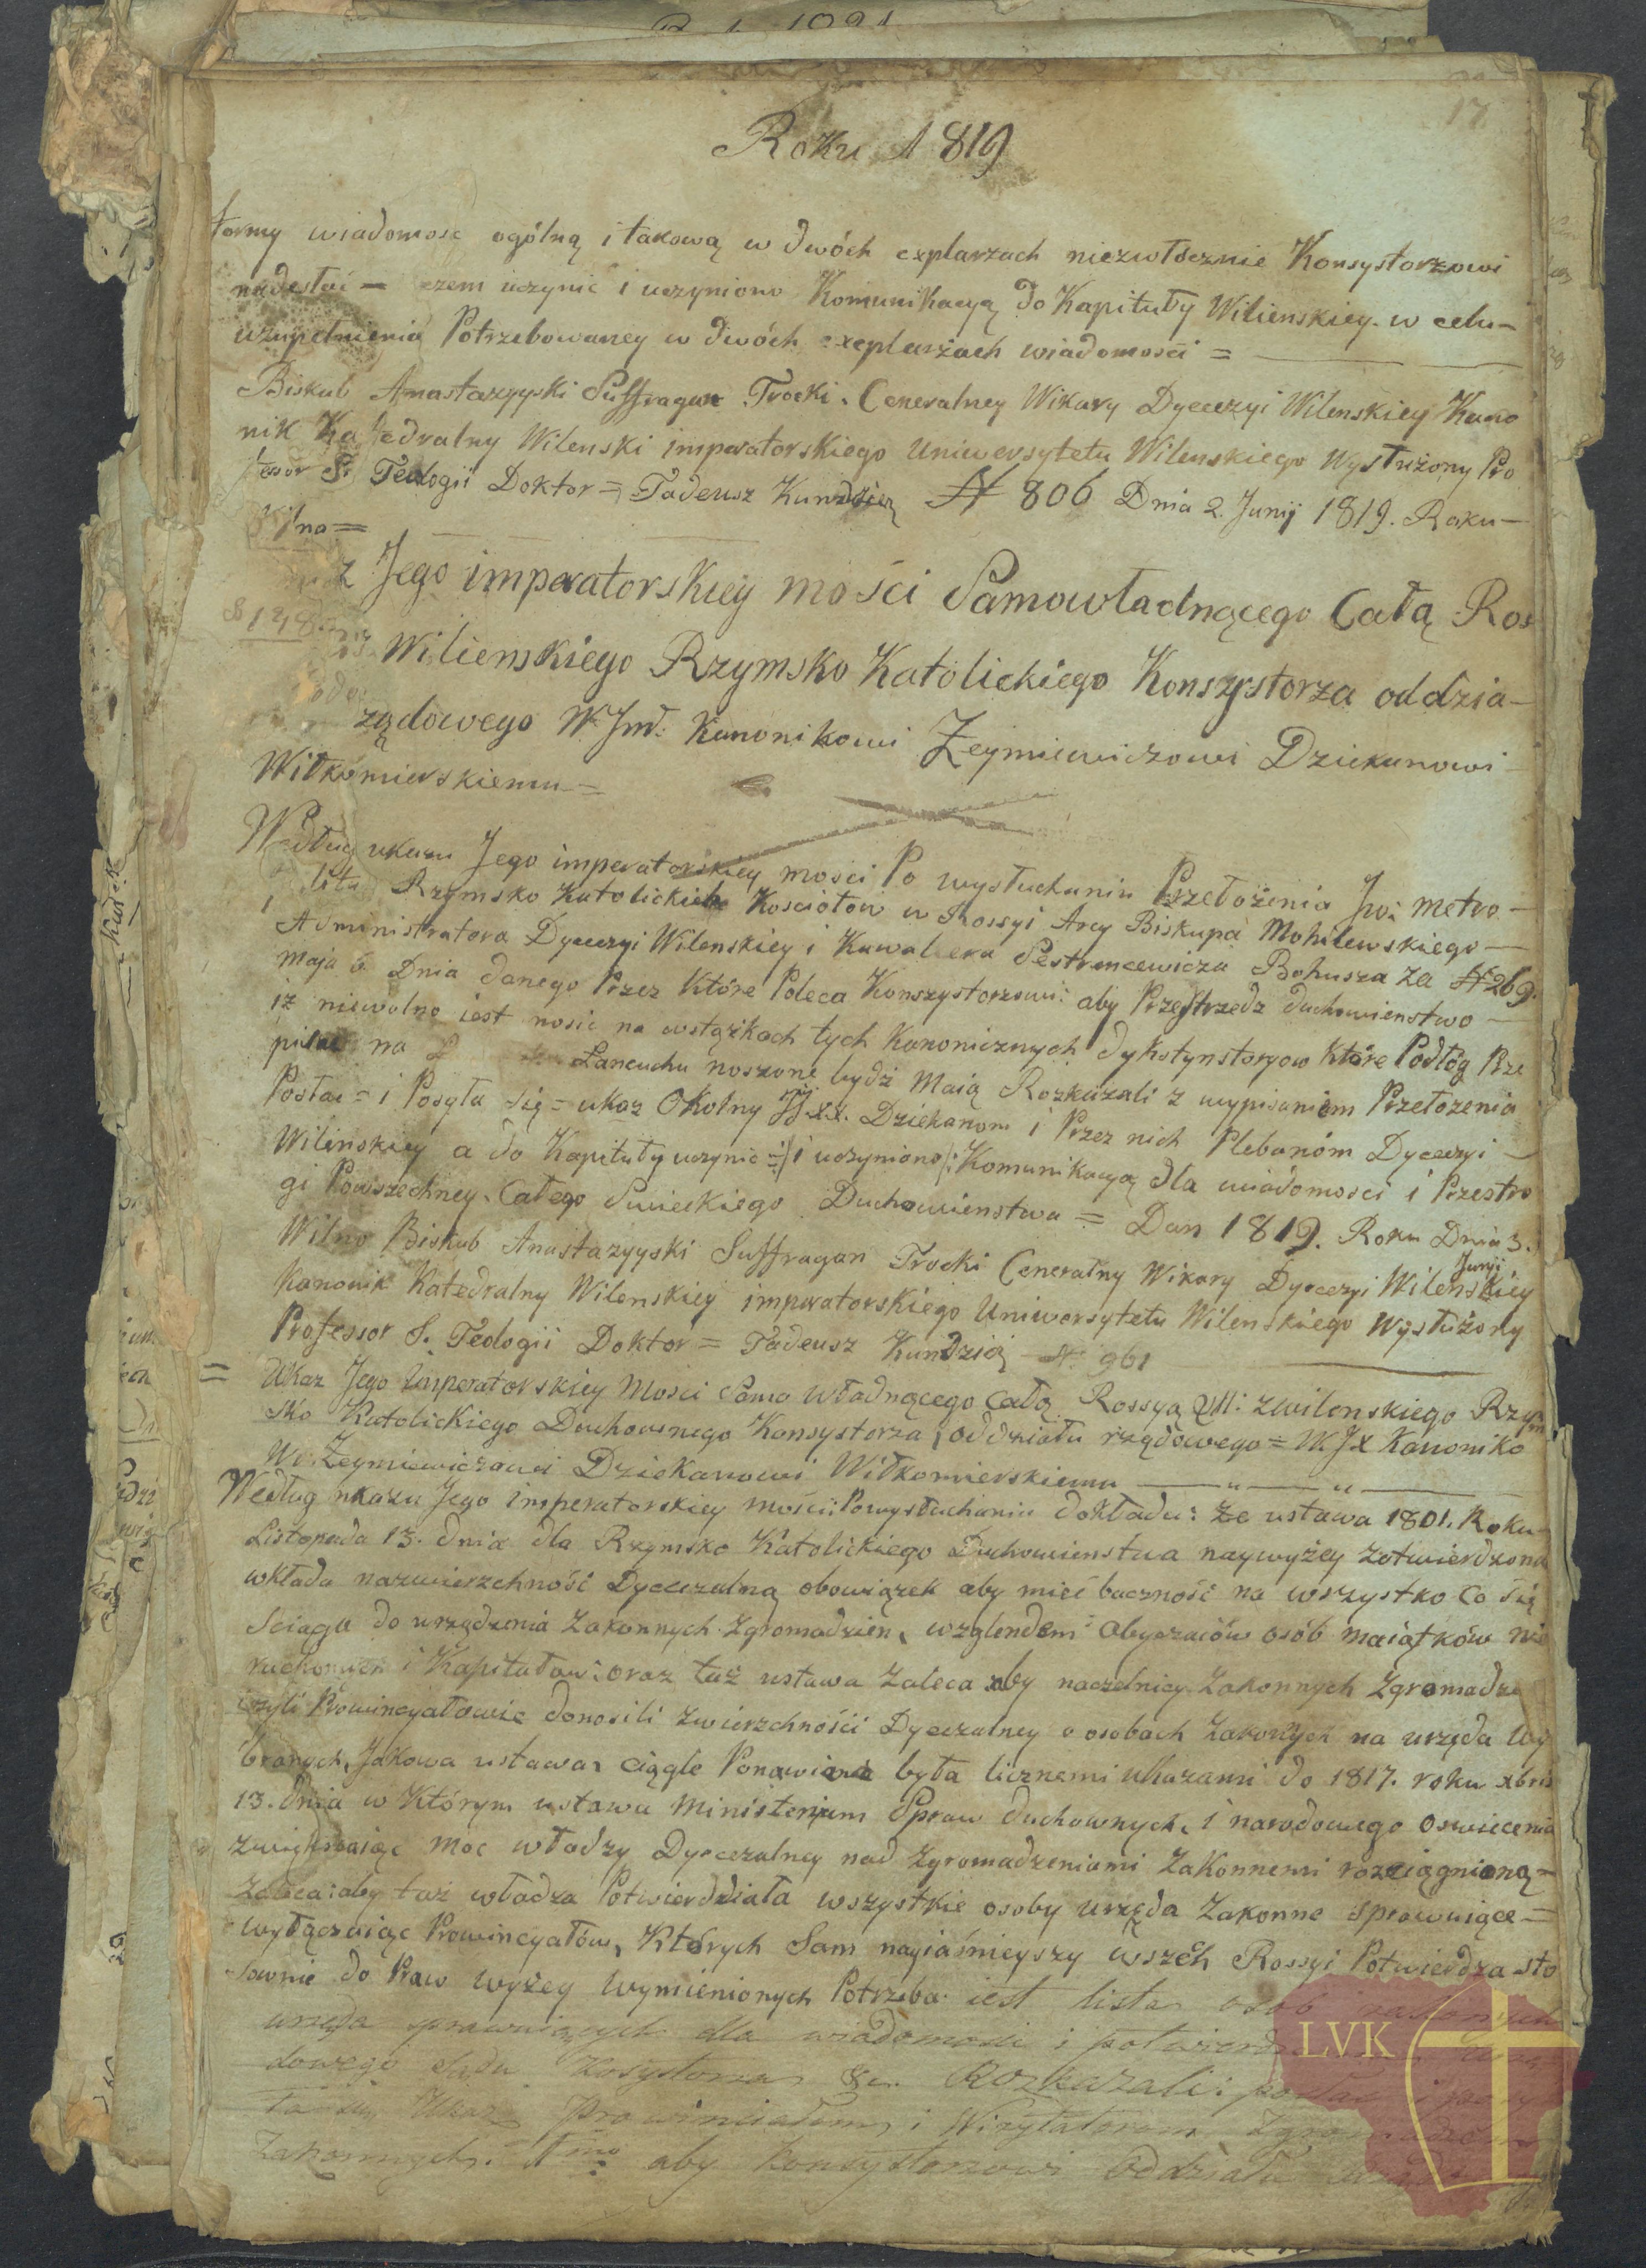 17
Roku 1819
formy wiadomość ogólną i takową w dwóch explarzach niezwłócznie Konsystorzowi
nadesłać — czem uczynić i uczyniono Komunikacyą do Kapituły Wilienskiey. w celu —
uzupełnienia Potrzebowaney w dwóch exeplarżach wiadomości =
Biskub Anastazyyski Suffragan Trocki. Generalney Wikary Dyecezyi Wilenskiey Kano
nik Katedralny Wilenski imperatorskiego Uniwersytetu Wilenskiego Wysłużony Pro
fesor S. Teologii Doktor = Tadeusz Kundzicz N 806 Dnia 2. Junij 1819. Roku —
Wilna =
z Jego imperatorskiey mości Samowładnącego Całą Ros
Wilienskiego Rzymsko Katolickiego Konszystorza oddzia —
ządowego W. Jmć: Kanonikowi Żeymiewiczowi Dziekanowi —
Wiłkomierskiemu =
Według ukazu Jego imperatorskiey mosci Po wysłuchaniu Przełożenia Jwo metro —
lita Rzymsko Katolickich Kosciołow w Rossyi Arcy Biskupa Mohilewskiego —
Administratora Dyecezyi Wilenskiey i Kawalera Sestrencewicza Bohusza za N 269.
Maja 6 Dnia danego Przez Które Poleca Konszystorzowi: aby Przestrzedz duchowienstwo —
iż niewolno iest nosić na wstążkach tych Kanonicznych dykstynktoryow Które Podłóg Prze
pisów na Łancuchu noszone bydź Maią Rozkazali z wypisaniem Przełożenia
Posłać = i Posyła się = ukaz Okolny JJ. xx. Dziekanom i Przez nich Plebanóm Dyecezyi —
Wilinskiey a do Kapituły uczynić = /i uczyniono/: Komunikacyą dla wiadomosci i Przestro
gi Powszechney. Całego Swieckiego Duchowienstwa = Dan 1819. Roku Dnia 3.
Junij
Wilno Biskub Anastazyyski Suffragan Trocki Generalny Wikary Dyecezyi Wilenskiey
Kanonik Katedralny Wilenskiey imperatorskiego Uniwersytetu Wilenskiego Wysłużony
Professor S. Teologii Doktor = Tadeusz Kundzicz N. 961
= Ukaz Jego imperatorskiey Mosci Samo władnącego całą Rossyą zwilenskiego Rzym
sko Katolickiego Duchownego Konsystorza, oddziału rządowego = W. Jx Kanoniko
wi Żeymiewiczowi Dziekanowi Wiłkomierskiemu — „ — „ —
Według ukazu Jego imperatorskiey mości: Powysłuchaniu dokładu: że ustawa 1801. Roku
Listopada 13. dnia dla Rzymsko Katolickiego Duchowienstwa naywyżey zatwierdzona
wkłada nazwierzchność Dyecezalną obowiązek aby mieć baczność na wszystko co się
sciąga do urządzenia Zakonnych Zgromadzien, wzglendem obyczaiów osób maiątków nie
ruchomych i Kapitałów: oraz taż ustawa Zaleca aby naczelnicy Zakonnych Zgromadze
czyli Prowincyałowie donosili zwierzchności Dyeczalney o osobach Zakonnych na urzęda wy
branych, Jakowa ustawa ciągle Ponawiana była licznemi ukazami do 1817. roku xbris
13. dnia w Którym ustawa Ministerjum Spraw duchownych, i narodowego oswiecenia
zwiększaiąc moc władzy Dyecezalney nad zgromadzeniami Zakonnemi rozciągnioną =
zaleca: aby taż władza Potwierdziała wszystkie osoby urzęda Zakonne sprawuiące =
wyłączaiąc Prowincyałów, Których Sam nayiaśnieyszy wszech Rossyi Potwierdza sto
sownie do Praw wyżey wymienionych Potrzeba iest lista osob zakonnych
urzęda sprawuiących dla wiadomosci i potwierdzenia
dowego Sądu Kosystorza &c. Rozkazali: posłać i posy
ła się Ukaz Prowincialom i Wizytatorom Zgromadzen
Zakonnych. 1mo aby Konsystorzowi Oddziału
LVK